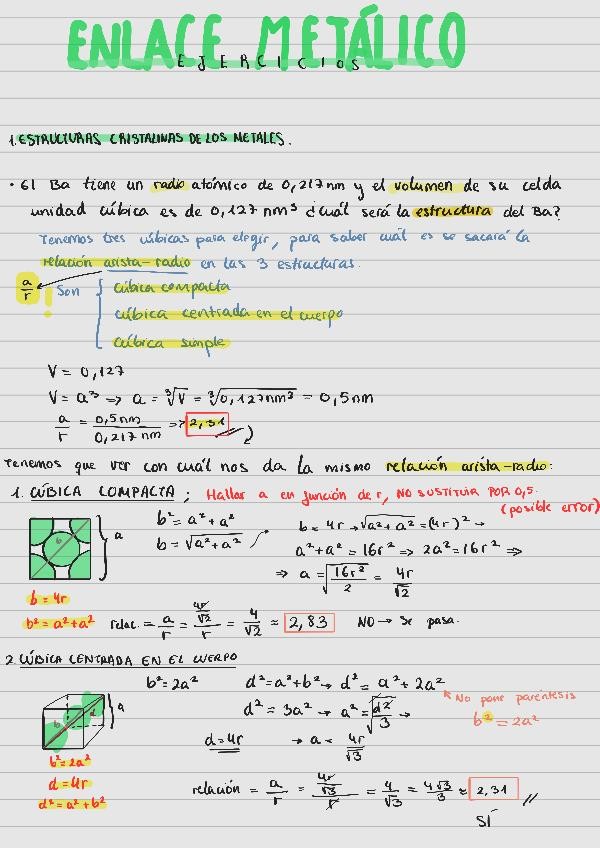 ENLACE METÁLICO
EJERCICIOS
1. ESTRUCTURAS CRISTALINAS DE LOS METALES.
• El Ba tiene un radio atómico de 0,217 nm y el volumen de su celda
unidad cúbica es de 0,127 nm³ ¿cuál será la estructura del Ba?
Tenemos tres cúbicas para elegir, para saber cuál es se sacará la
relación arista-radio en las 3 estructuras.
a/r ! Son { cúbica compacta
cúbica centrada en el cuerpo
cúbica simple
V = 0,127
V = a³ => a = ∛V = ∛0,127nm³ = 0,5nm
a/r = 0,5nm / 0,217nm => 2,31
Tenemos que ver con cuál nos da la misma relación arista-radio:
1. CÚBICA COMPACTA; Hallar a en función de r, NO SUSTITUIR POR 0,5.
(posible error)
b a
b² = a² + a² b = 4r → √a² + a² = (4r)² →
b = √a² + a² a² + a² = 16r² => 2a² = 16r² =>
=> a = √16r²/2 = 4r/√2
b = 4r
b² = a² + a² relac. = a/r = 4r/√2 / r = 4/√2 ≈ 2,83 NO → Se pasa.
2. CÚBICA CENTRADA EN EL CUERPO
b² = 2a² d² = a² + b² → d² = a² + 2a²
No pone paréntesis
b² = 2a²
b d a
d² = 3a² → a² = √d²/3 →
d = 4r → a = 4r/√3
b² = 2a²
d = 4r
d² = a² + b²
relación = a/r = 4r/√3 / r = 4/√3 = 4√3/3 ≈ 2,31 //
SÍ